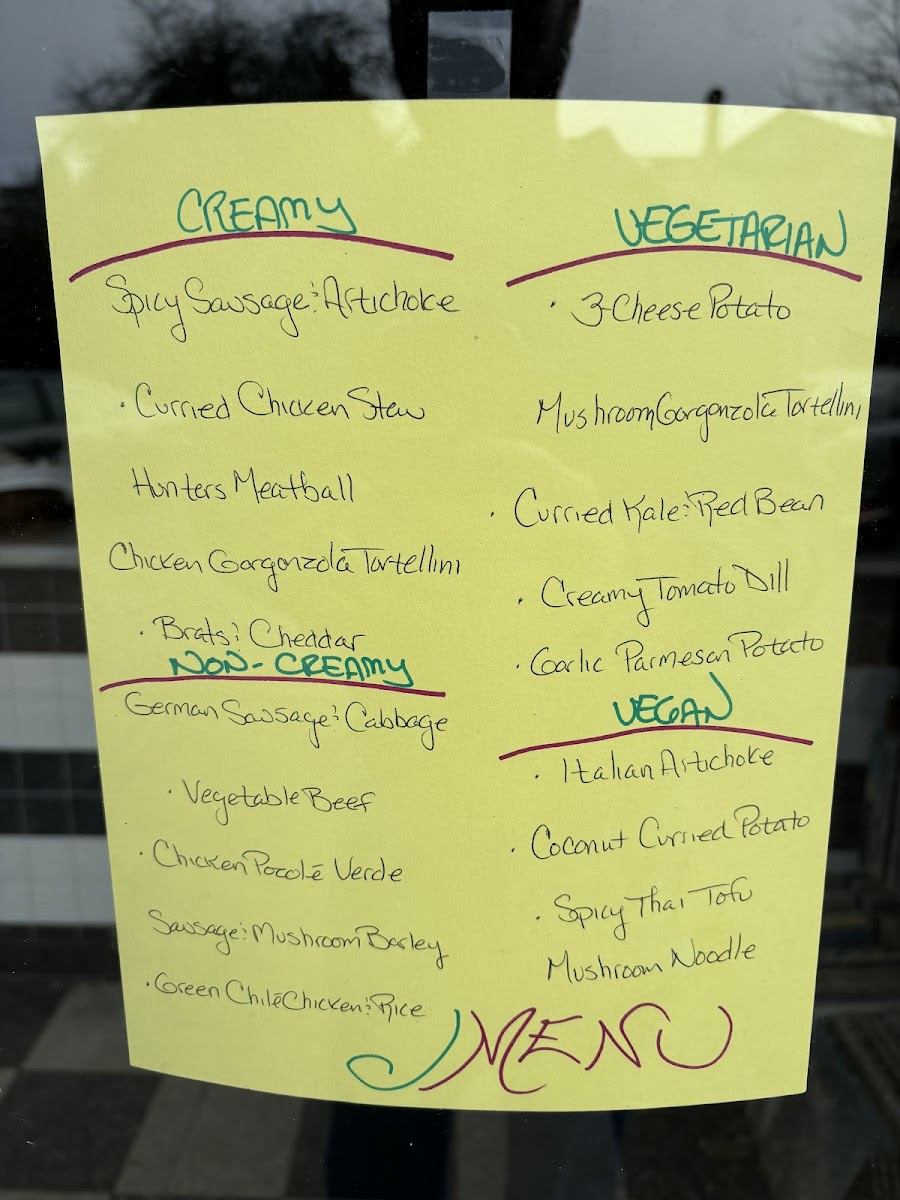 CREAMY
Spicy Sausage & Artichoke
· Curried Chicken Stew
Hunters Meatball
Chicken Gorgonzola Tortellini
· Brats & Cheddar
NON-CREAMY
German Sausage & Cabbage
· Vegetable Beef
· Chicken Pozolé Verde
Sausage & Mushroom Barley
· Green Chilé Chicken & Rice
VEGETARIAN
· 3-Cheese Potato
Mushroom Gorgonzola Tortellini
· Curried Kale & Red Bean
· Creamy Tomato Dill
· Garlic Parmesan Potato
VEGAN
· Italian Artichoke
· Coconut Curried Potato
· Spicy Thai Tofu
Mushroom Noodle
MENU